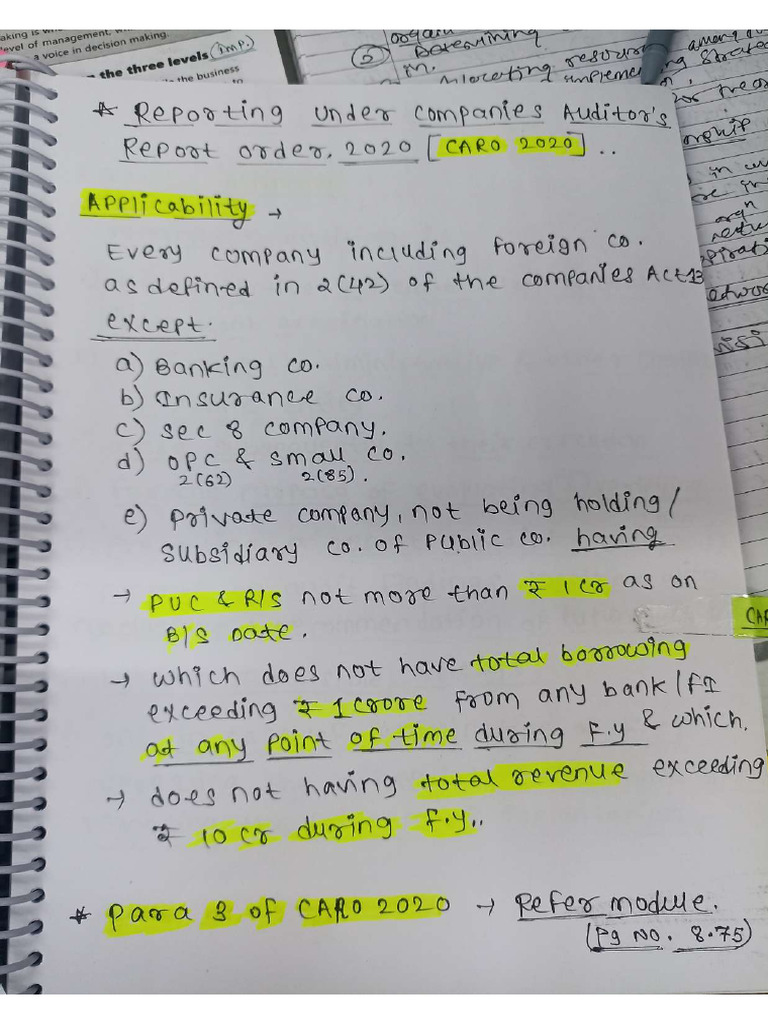 aking is
level of management,
a voice in decision making.
the three levels (imp.)
the business
organ
Determining
in.
Allocating resour
among
implementing strate
* Reporting under companies Auditor's
Report order, 2020 [CARO 2020] ..
Applicability →
Every company including foreign co.
as defined in 2(42) of the companies Act 13
except.
a) Banking co.
b) Insurance co.
c) sec 8 company.
d) OPC & small co.
2(62) 2(85).
e) private company, not being holding/
subsidiary co. of public co. having
→ PUC & R/S not more than ₹ 1 cr as on
B/S Date.
CAR
→ which does not have total borrowing
exceeding ₹ 1 crore from any bank/FI
at any point of time during F.y & which.
→ does not having total revenue exceeding
₹ 10 cr during f.y..
* para 3 of CARO 2020 → Refer module.
(Pg No. 8.75)